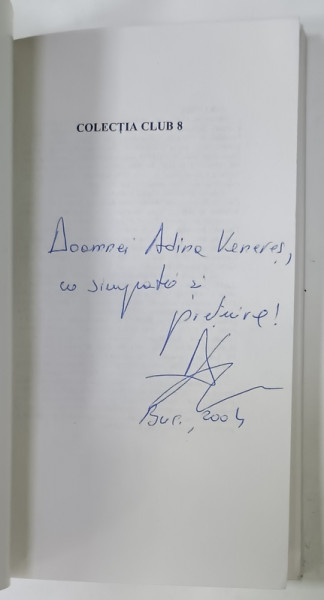 COLECȚIA CLUB 8
Doamnei Adina Kenereș,
cu simpatie și
prețuire!
Buc., 2004